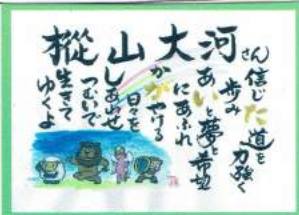 樅山大河さん
信じた道を
力強く
歩み
あいと夢と希望
にあふれ
かがやける
日々を
しあわせ
つむいで
生きて
ゆくよ